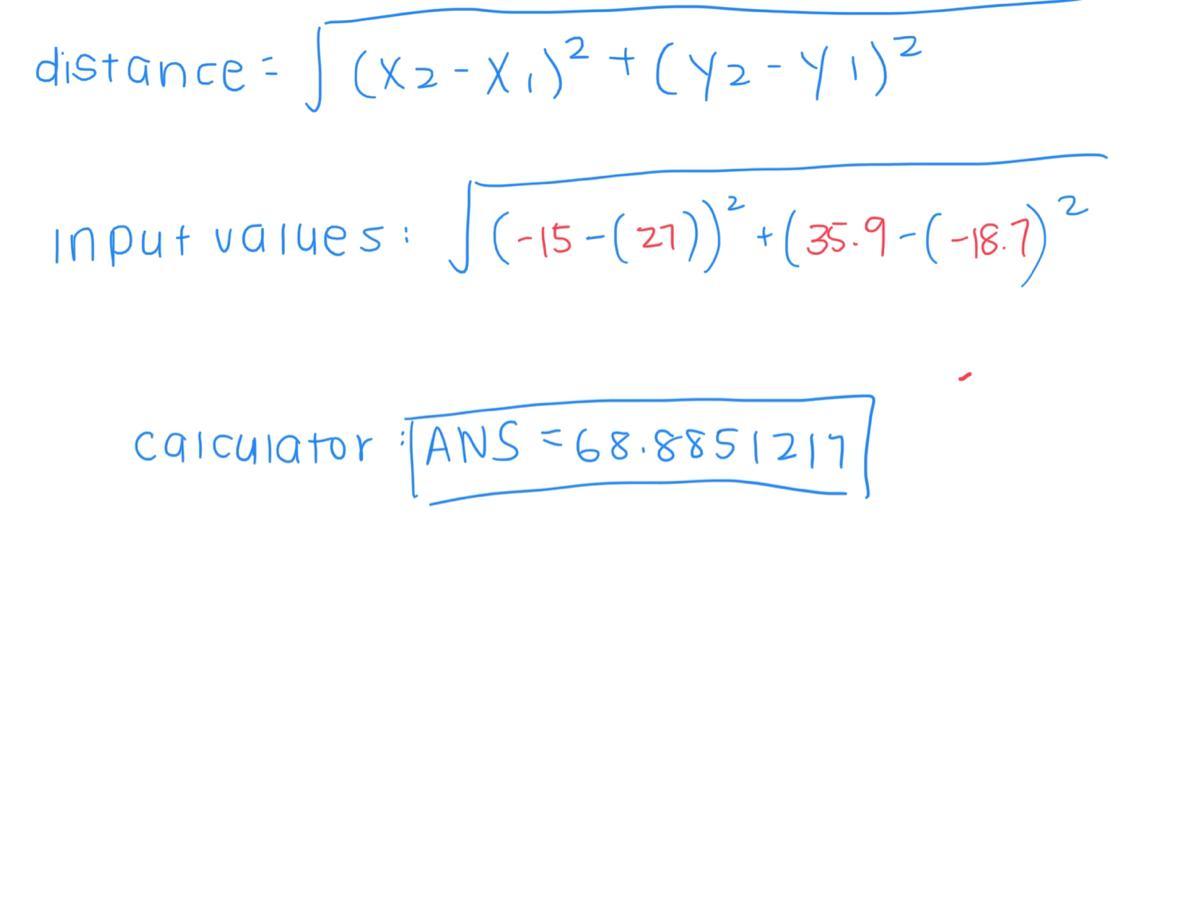 distance = √(X2 - X1)² + (Y2 - Y1)²
Input values: √(-15 - (27))² + (35.9 - (-18.7)²
calculator : ANS = 68.8851217